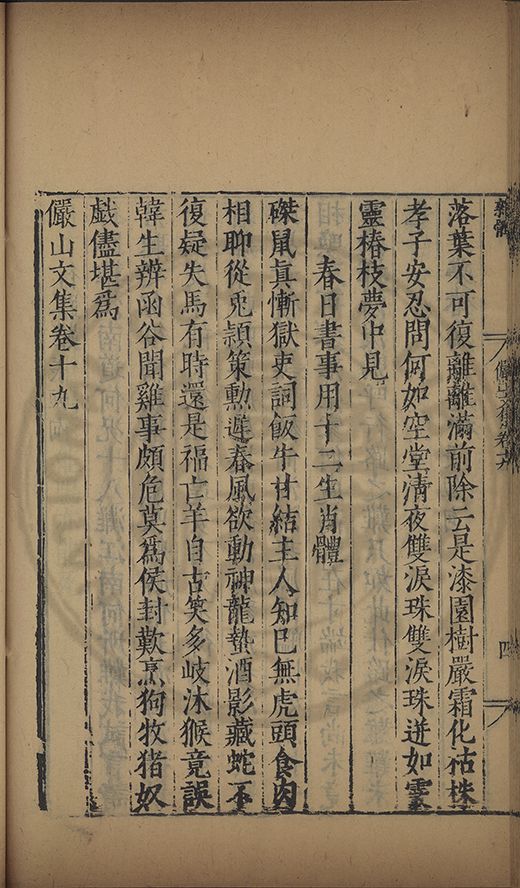 落葉不可復離離滿前除云是漆園樹嚴霜化枯株
孝子安忍問何如空堂清夜雙淚珠雙淚珠迸如霊
靈椿枝夢中見
春日書事用十二生肖體
磔鼠真慚獄吏詞飯牛甘結主人知巳無虎頭食肉
相聊從兎頴策勲遲春風欲動神龍蟄酒影藏蛇不
復疑失馬有時還是福亡羊自古笑多岐沐猴竟誤
韓生辨函谷聞雞事頗危莫為侯封歎烹狗牧猪奴
戯儘堪為
儼山文集卷十九